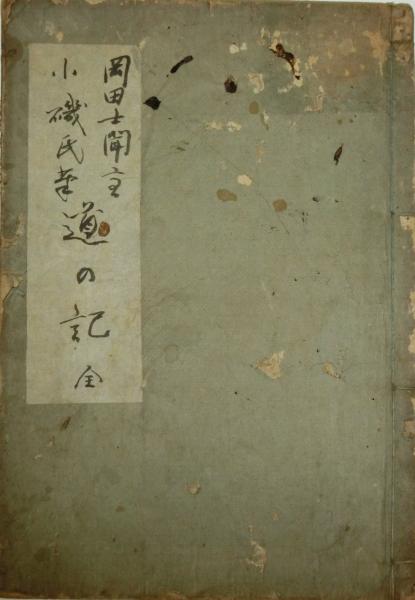 岡田士聞主
小磯氏
道の記 全